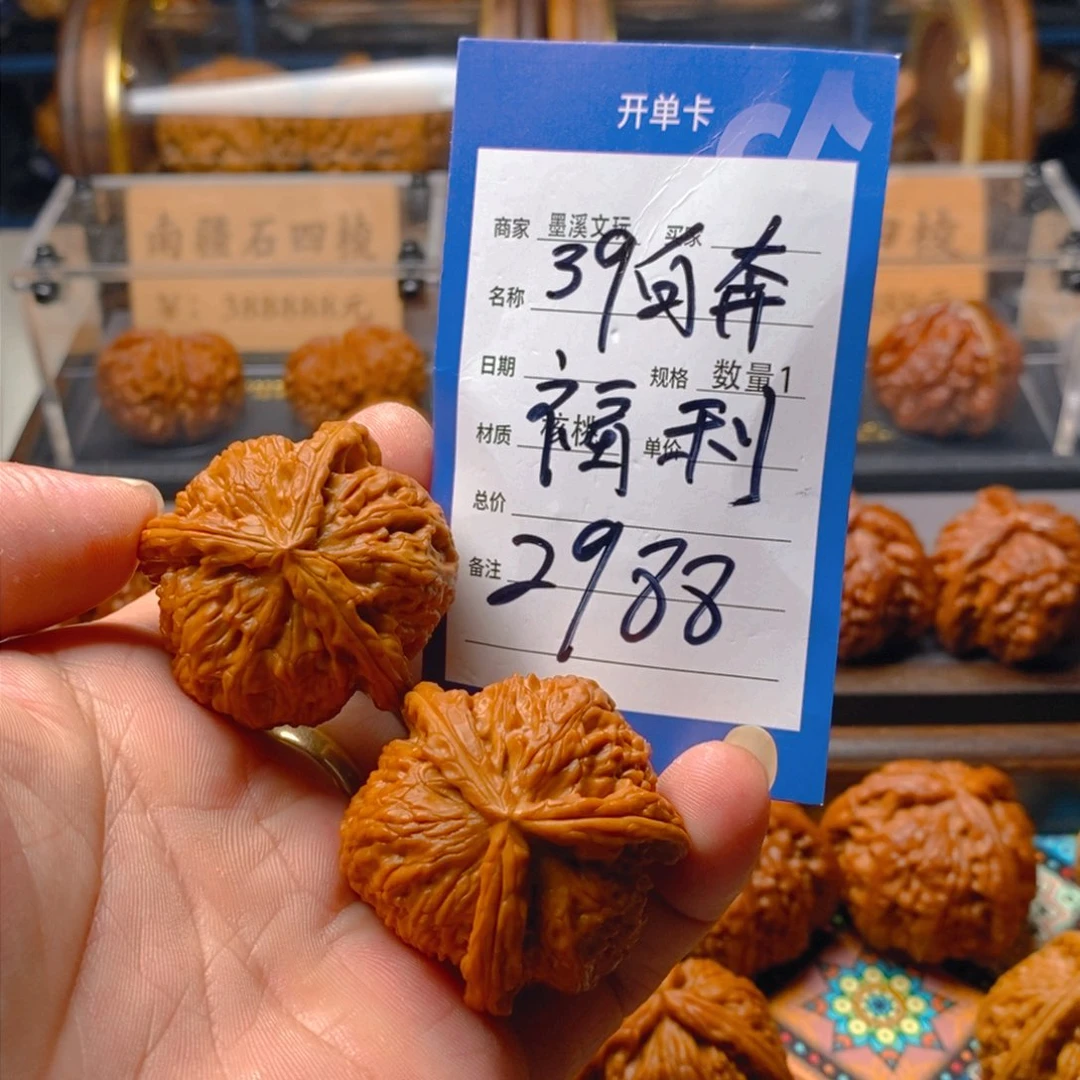 开单卡
商家 墨溪文玩 买家
名称 39百奔
日期 规格 数量1
福利
材质 核桃 单价
总价
备注 2988
石四棱
¥:388888元